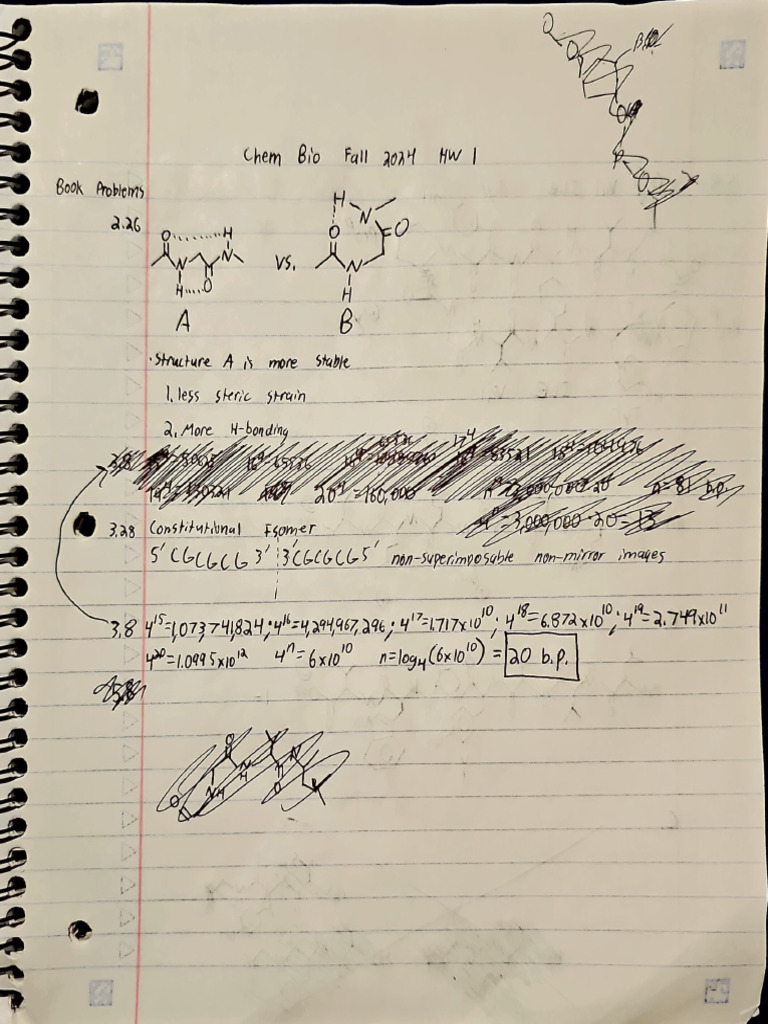 Chem Bio Fall 2024 HW 1
Book Problems
2.26
O H
N N
H O
A
vs.
H N
O O
N
H
B
· Structure A is more stable
1. less steric strain
2. More H-bonding
3.8
20⁴=160,000
3.28 Constitutional Isomer
5' CGCGCG 3' 3'CGCGCG5' non-superimposable non-mirror images
3.8 4¹⁵=1,073,741,824; 4¹⁶=4,294,967,296; 4¹⁷=1.717x10¹⁰; 4¹⁸=6.872x10¹⁰; 4¹⁹=2.749x10¹¹
4²⁰=1.0995x10¹² 4ⁿ=6x10¹⁰ n=log₄(6x10¹⁰) = 20 b.p.